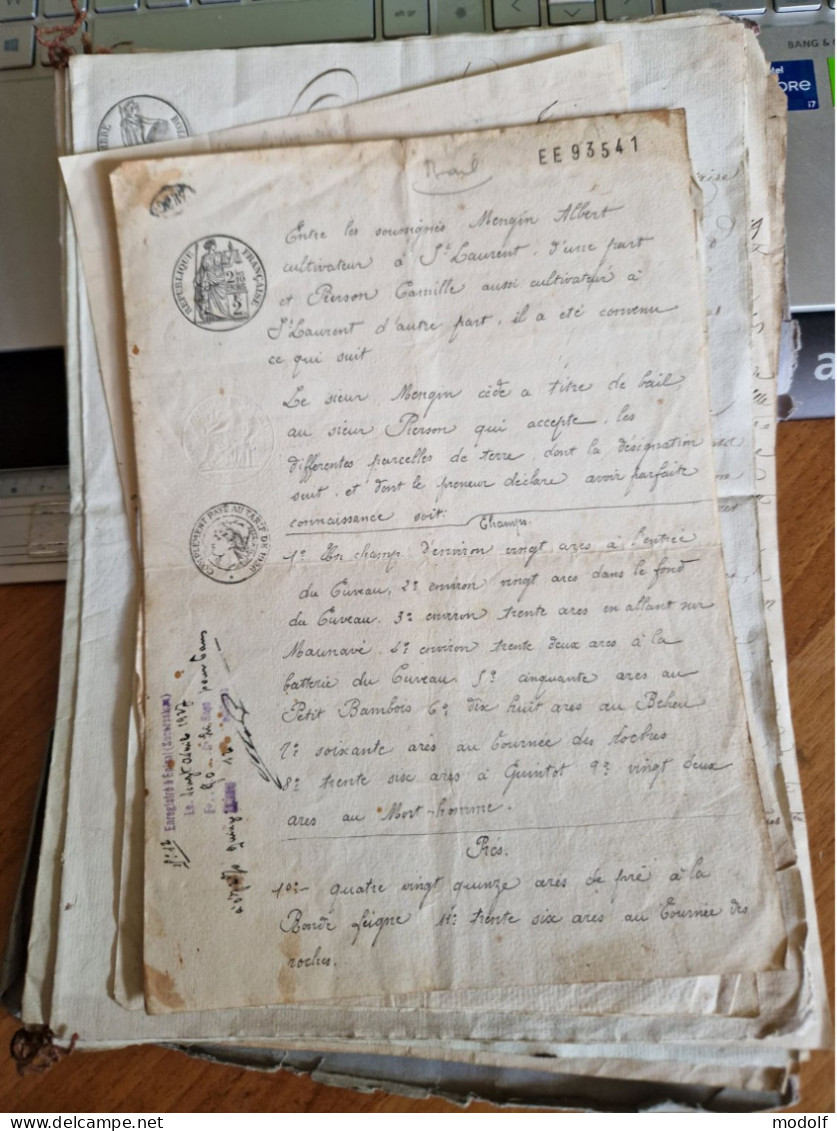 Bail
EE 93541
RÉPUBLIQUE FRANÇAISE
Entre les soussignés Mengin Albert
cultivateur à St Laurent, d'une part
et Pierson Camille aussi cultivateur à
St Laurent d'autre part, il a été convenu
ce qui suit
Le sieur Mengin cède a titre de bail,
au sieur Pierson qui accepte, les
différentes parcelles de terre, dont la désignation
suit, et dont le preneur déclare avoir parfaite
connaissance soit:
Champs.
COMPLÉMENT PAYÉ AU TARIF DE
1º Un champ d'environ vingt ares à l'entrée
du Cuveau, 2º environ vingt ares dans le fond
du Cuveau. 3º environ trente ares en allant sur
Maunavé. 4º environ trente deux ares à la
batterie du Cuveau 5º cinquante ares au
Petit Bambois 6º dix huit ares au Beheu
7º soixante ares au Tournée des roches
8º trente six ares à Guintot 9º vingt deux
ares au Mort-homme.
Enregistré à Epinal
Le vingt
Prés.
10º- quatre vingt quinze ares de pré à la
Ronde feigne 11º trente six ares au Tournée des
roches.
BANG &
ORE
i7
modolf